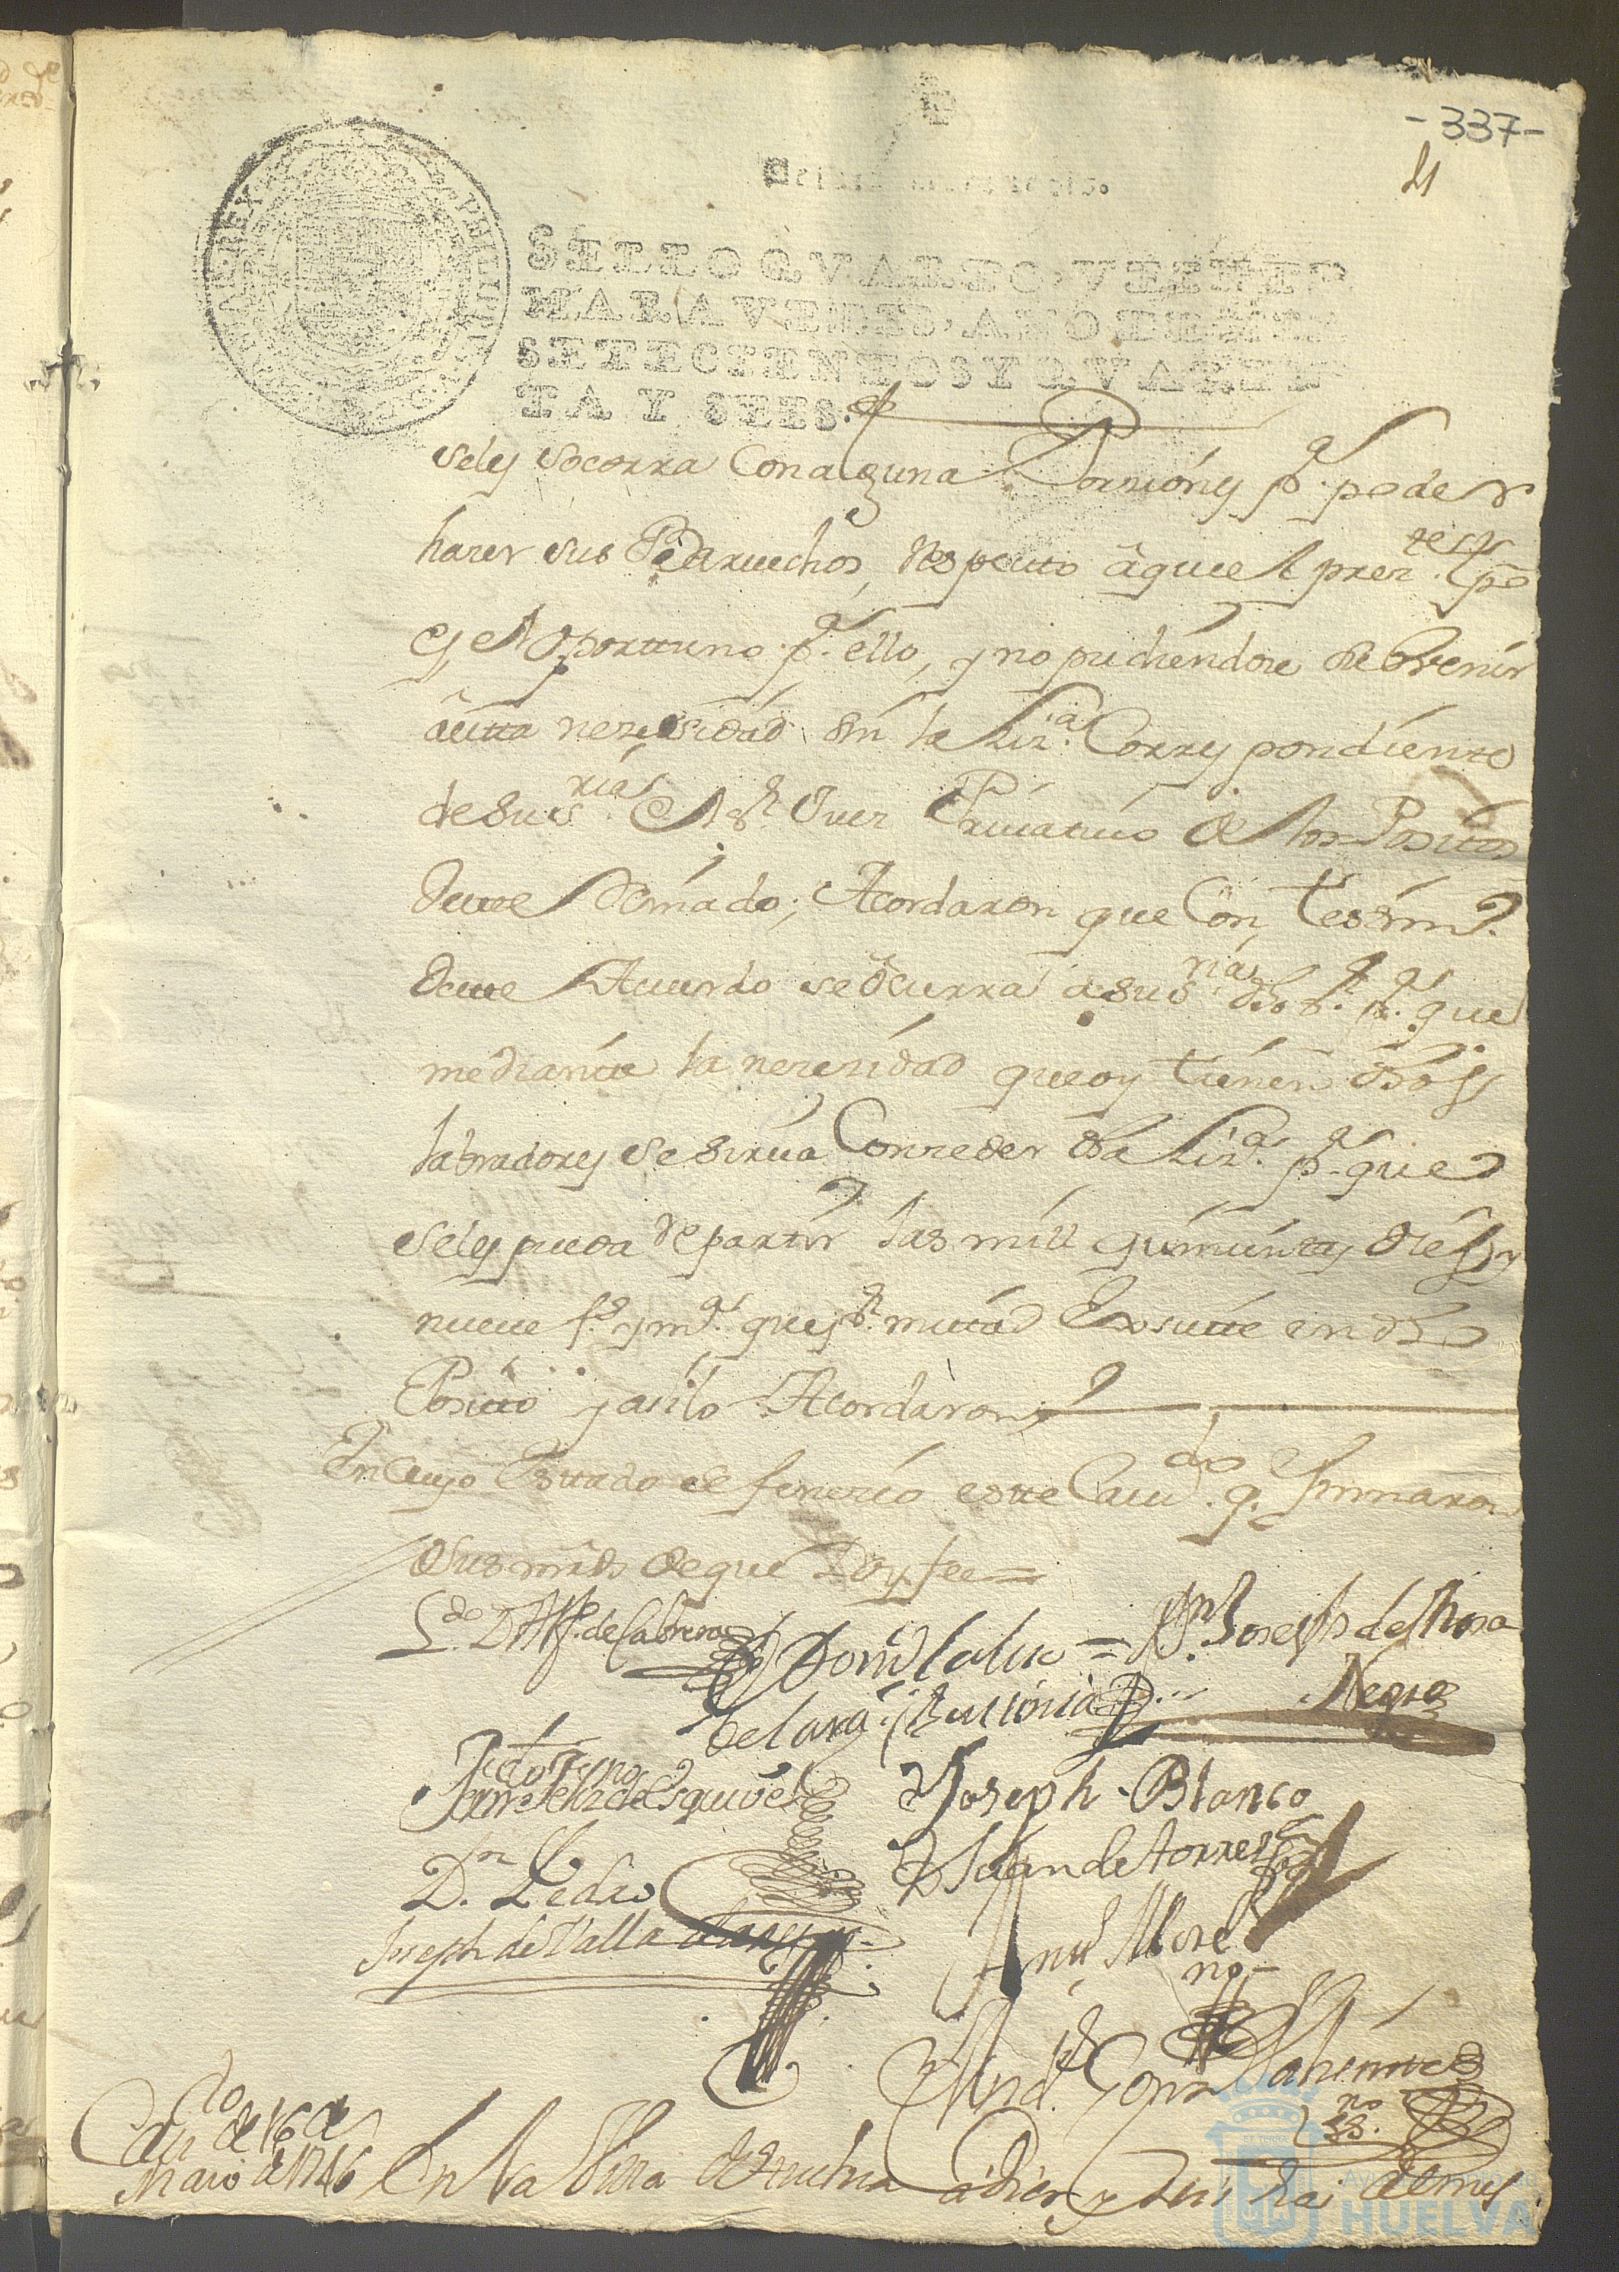 -337-
SELLO QVARTO, VEINTE
MARAVEDIS, AÑO DE MIL
SETECIENTOS Y QVAREN-
TA Y SEIS.
seles socorra Con alguna Porsiones pª. poder
hazer sus Pedruechos, Respecto â que el prezte. tpo
es el Oporttuno pª. ello, y no pudiendose debvenir
âestta nezesidad sin la Lizª. Correspondiente
de su sria. el Sr. Juez Pribatiuo de los Positos
deeste Reinado; Acordaron que Con Testimo.
deeste Acuerdo se ocurra a su sria. dho sr. pª. que
mediante la nezesidad que oy tienen dhos
labradores se sirua Conzeder dha Lizª. pª. que
seles pueda Repartir las mill quinientas diez y
nueue fs. y mª. que pr. mittad Existte en dho
Positto y asilo Acordaron
En Cuyo Esttado se fenezio este Caudo. q. firmaron
sus mrds de que Doy fee =
Ldo. D. Alfo. de Cabrera
Joseph de la Rosa
Negro
Joseph Blanco
Juan de torres
Dn. Pedro
Joseph de Valladares
Antt. More
no
Caudo de 16 de
Maio de 1746
En la Villa de Huelua â diez y seis dias del mes
AYUNTAMIENTO DE
HUELVA